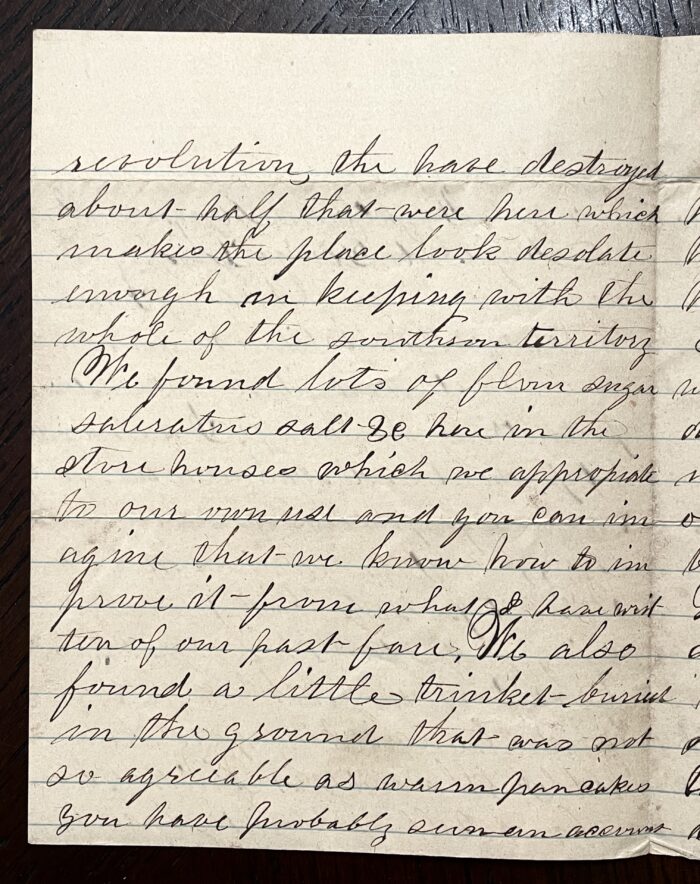 revolution, the have destroyed
about half that were here which
makes the place look desolate
enough in keeping with the
whole of the southson territory
We found lots of flour sugar
saleratus salt &c here in the
store houses which we appropiate
to our own use and you can im
agine that we know how to im
prove it from what I have writ
ten of our past fare, We also
found a little trinket buried
in the ground that was not
so agreeable as warm pancakes
you have probably seen an account